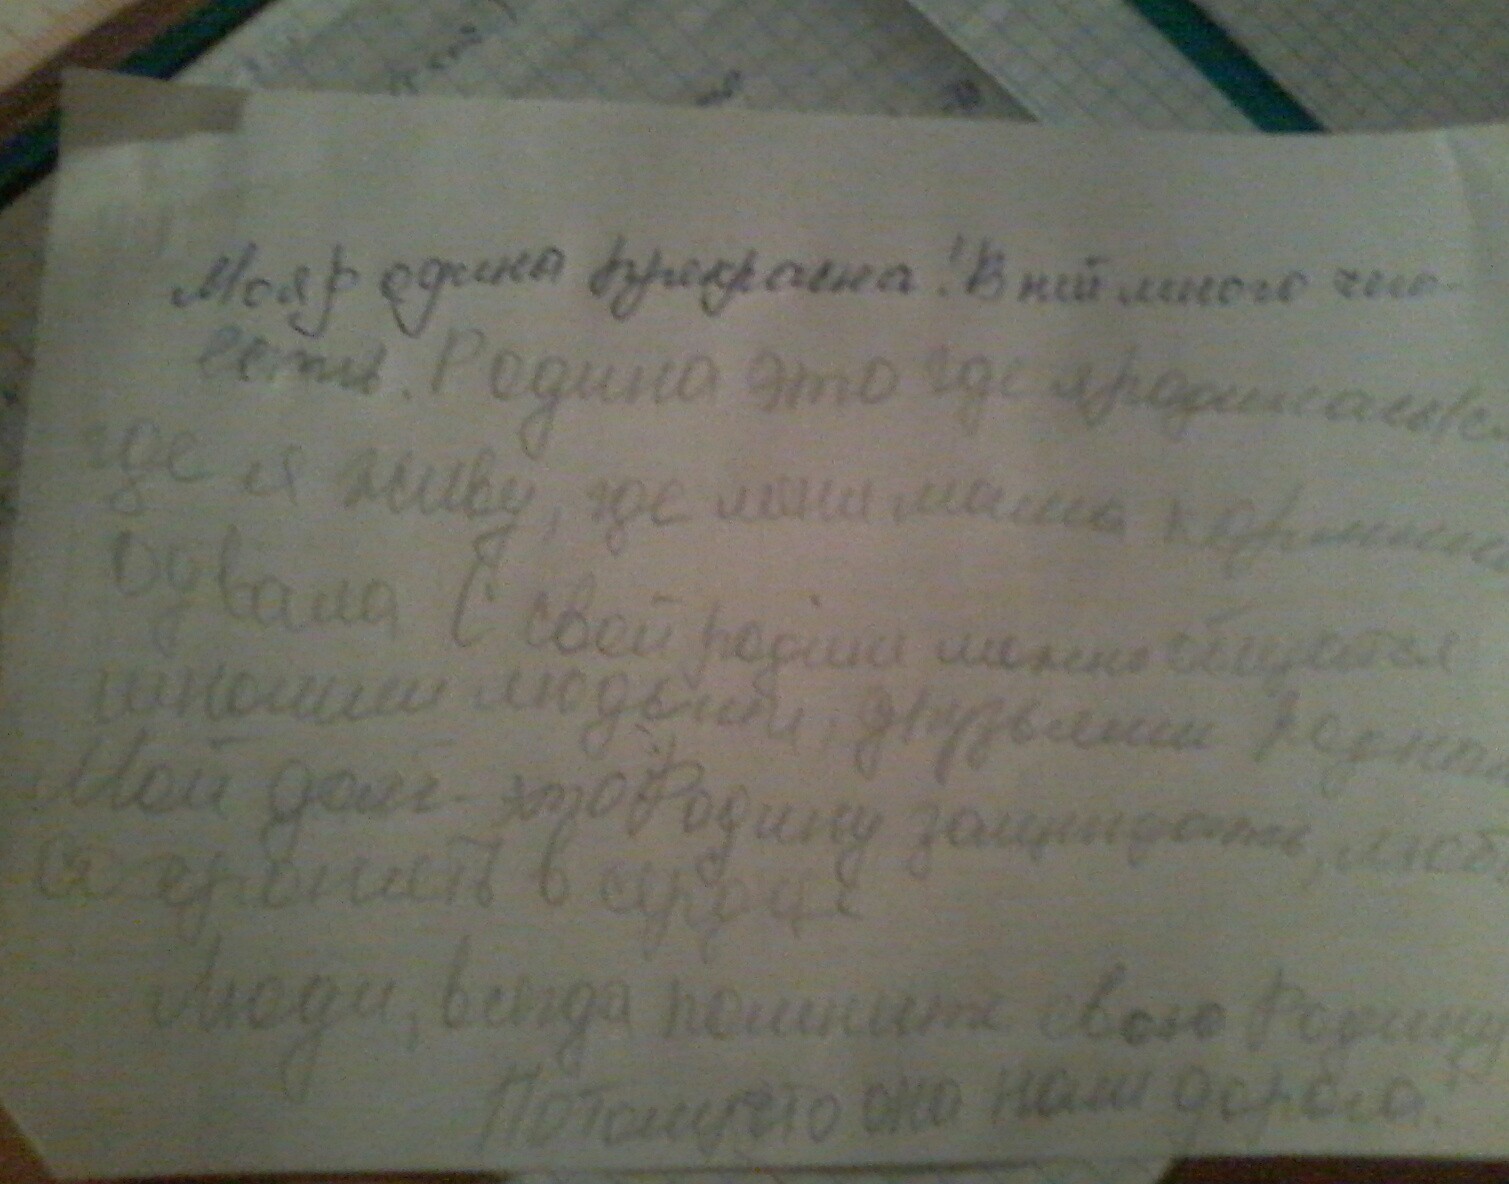 Моя родина прекрасна! В ней много чего
есть. Родина это где я родилась
где я живу, где меня мать кормила
одвала С свой родине можно общатся
многими людьми, друзьями
Мой долг - это Родину защищать,
хранить в сердце
Люди, всегда помните свою Родину
Потому что она нам дорога!